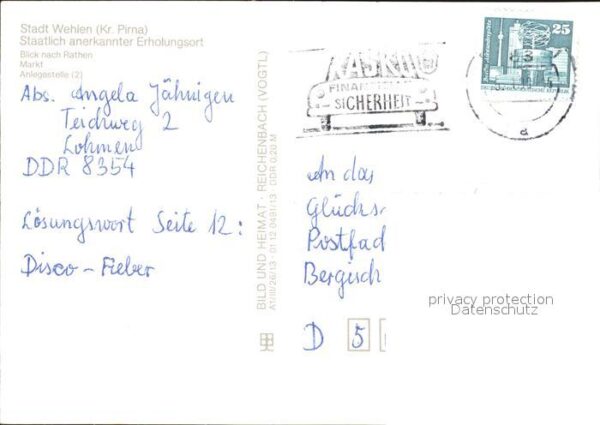 Stadt Wehlen (Kr. Pirna)
Staatlich anerkannter Erholungsort
Blick nach Rathen
Markt
Anlegestelle (2)
Abs. Angela Jähnigen
Teichweg 2
Lohmen
DDR 8354
Lösungswort Seite 12:
Disco-Fieber
BILD UND HEIMAT · REICHENBACH (VOGTL)
A1/III/26/13 · 01 12 0491/13 · DDR 0,20 M
KASKO
FINAN
SICHERHEIT
25
An das
Glücks
Postfad
Bergisch
D 5
privacy protection
Datenschutz